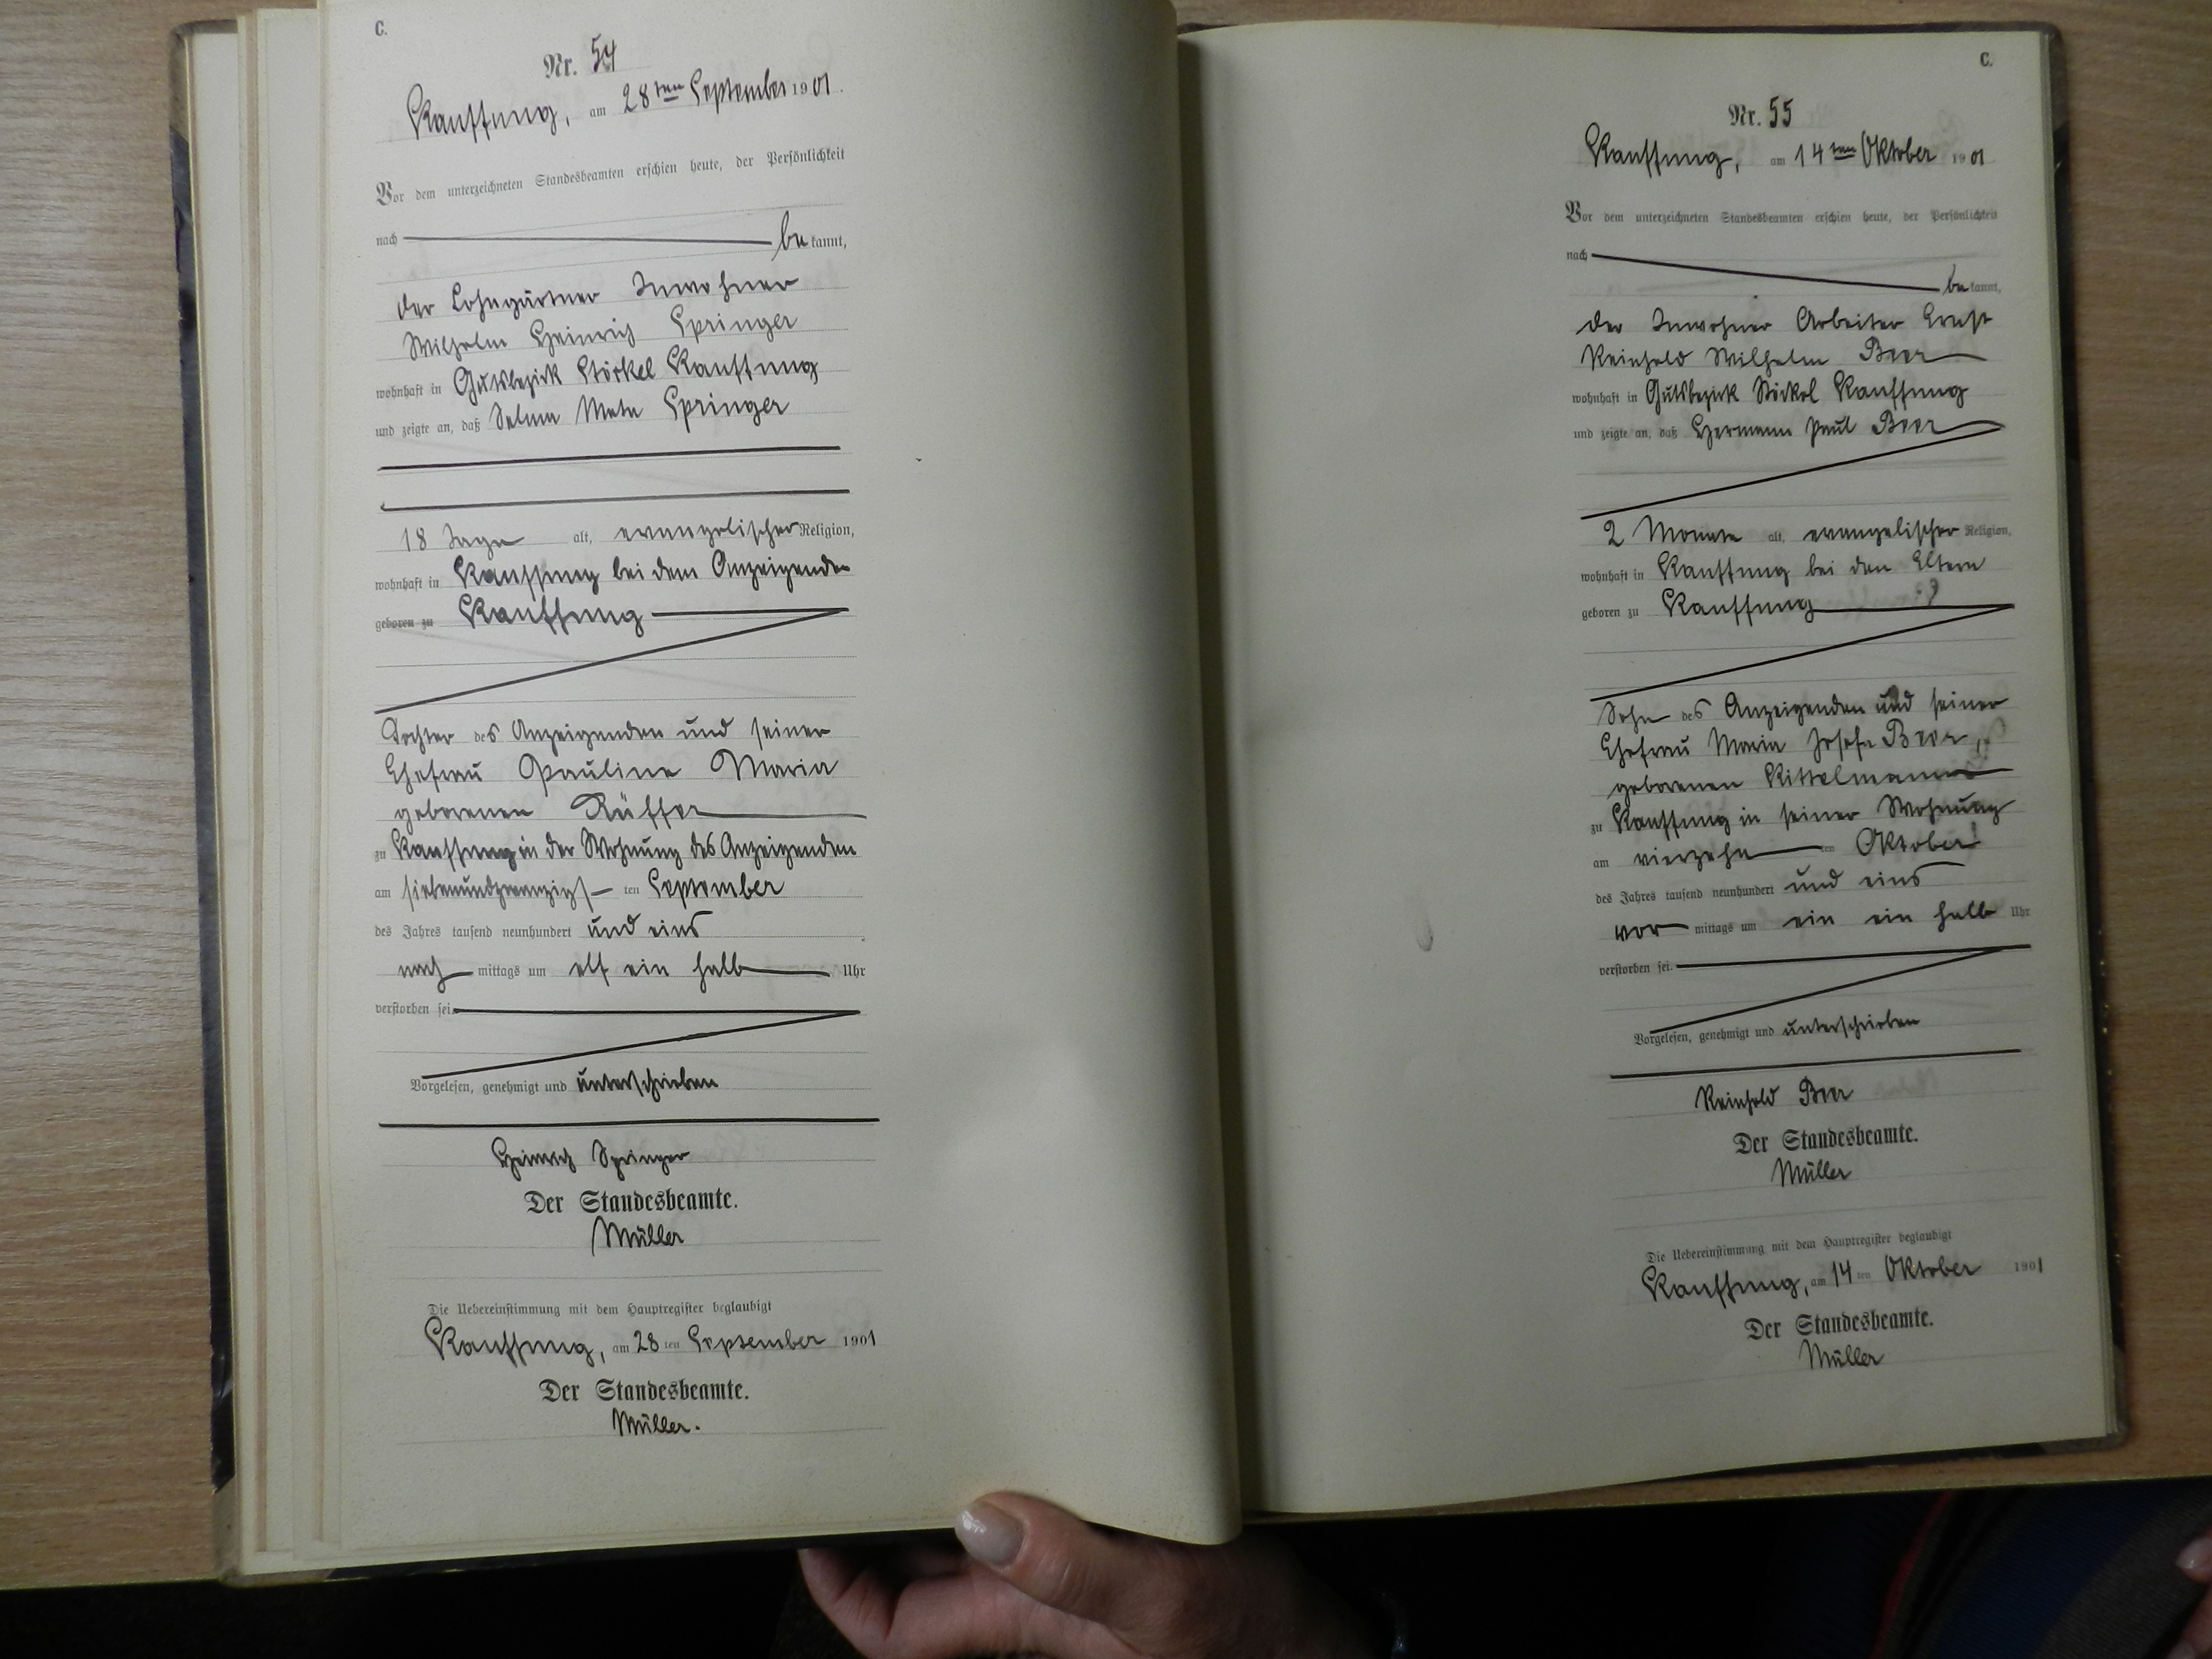 C.
Nr. 54
Kauffung, am 28ten September 1901.
Vor dem unterzeichneten Standesbeamten erschien heute, der Persönlichkeit
nach be kannt,
der Lohngärtner Inwohner
Wilhelm Heinrich Springer
wohnhaft in Gutsbezirk Stöckel Kauffung
und zeigte an, daß Selma Meta Springer
18 Tage alt, evangelischer Religion,
wohnhaft in Kauffung bei dem Anzeigenden
geboren zu Kauffung
Tochter des Anzeigenden und seiner
Ehefrau Pauline Maria
geborenen Rüffer
zu Kauffung in der Wohnung des Anzeigenden
am siebenundzwanzigs ten September
des Jahres tausend neunhundert und eins
nach mittags um elf ein halb Uhr
verstorben sei.
Vorgelesen, genehmigt und unterschrieben
Heinrich Springer
Der Standesbeamte.
Müller
Die Uebereinstimmung mit dem Hauptregister beglaubigt
Kauffung, am 28 ten September 1901
Der Standesbeamte.
Müller.
C.
Nr. 55
Kauffung, am 14ten Oktober 1901
Vor dem unterzeichneten Standesbeamten erschien heute, der Persönlichkeit
nach be kannt,
der Inwohner Arbeiter Ernst
Reinhold Wilhelm Beer
wohnhaft in Gutsbezirk Stöckel Kauffung
und zeigte an, daß Hermann Paul Beer
2 Monate alt, evangelischer Religion,
wohnhaft in Kauffung bei den Eltern
geboren zu Kauffung
Sohn des Anzeigenden und seiner
Ehefrau Maria Josefa Beer,
geborenen Kittelmann
zu Kauffung in seiner Wohnung
am vierzehn ten Oktober
des Jahres tausend neunhundert und eins
vor mittags um ein ein halb Uhr
verstorben sei.
Vorgelesen, genehmigt und unterschrieben
Reinhold Beer
Der Standesbeamte.
Müller
Die Uebereinstimmung mit dem Hauptregister beglaubigt
Kauffung, am 14 ten Oktober 1901
Der Standesbeamte.
Müller